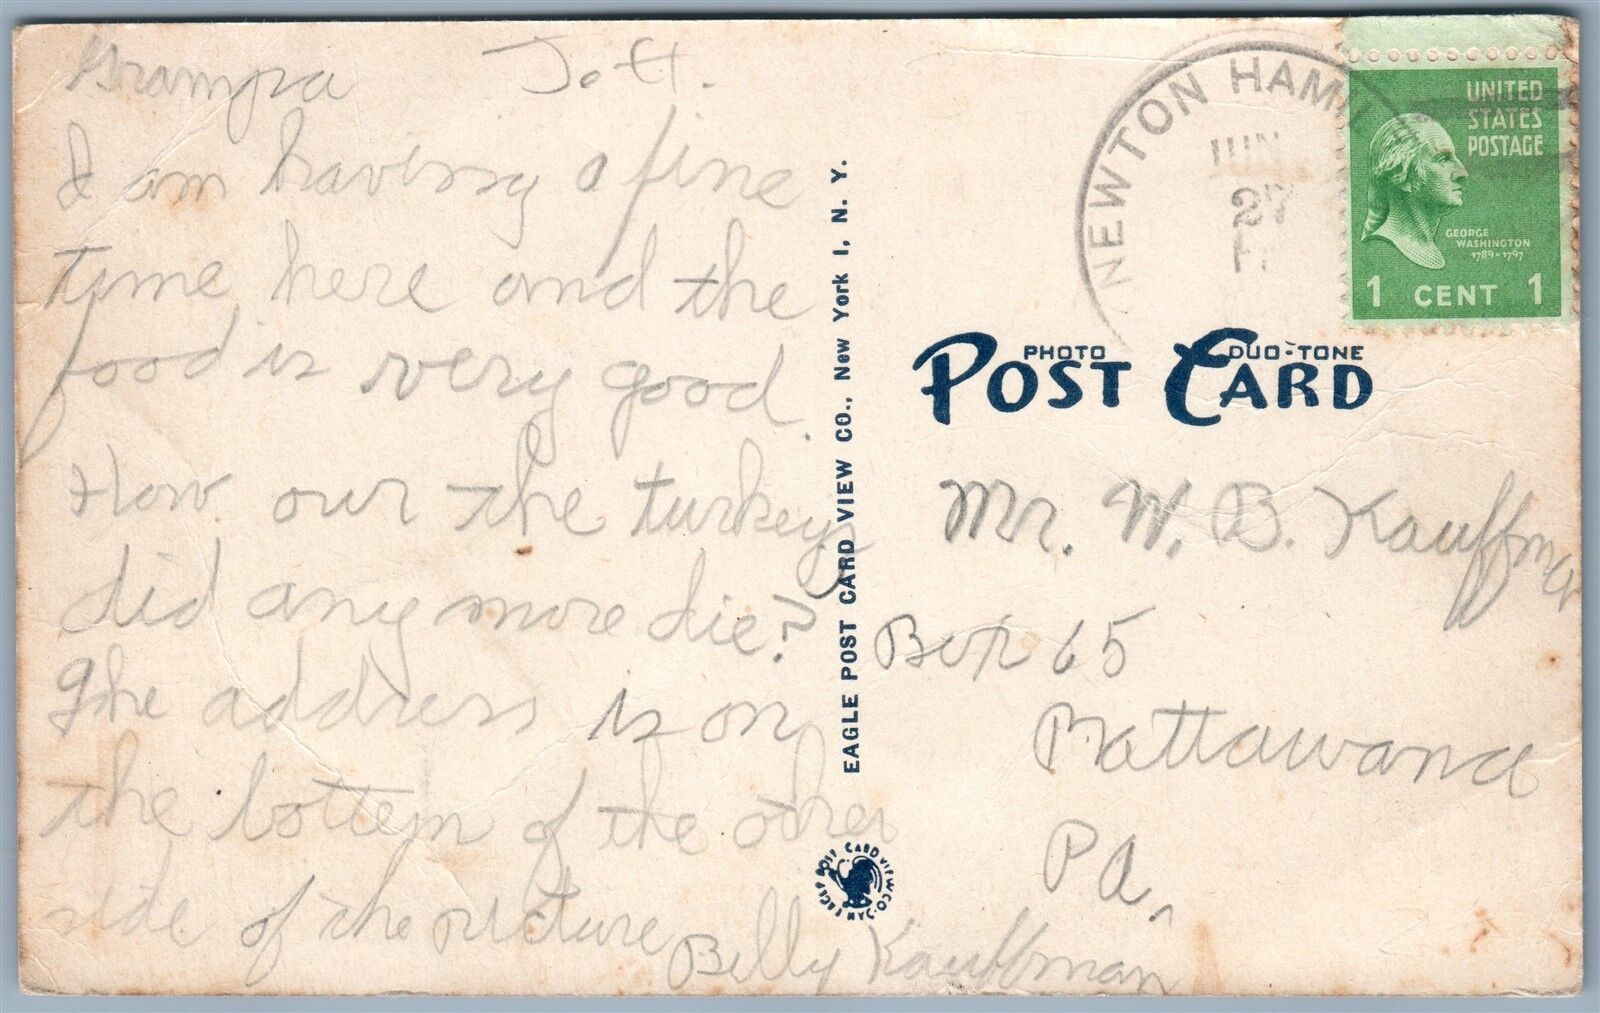 Grampa J&H.
I am having a fine
time here and the
food is very good.
How our the turkeys
did any more die?
The address is on
the bottem of the other
side of the picture
Billy Kauffman
EAGLE POST CARD VIEW CO., New York 1, N. Y.
NEWTON HAMIL
JUN
27
UNITED
STATES
POSTAGE
GEORGE
WASHINGTON
1789-1797
1 CENT 1
PHOTO DUO-TONE
POST CARD
Mr. W. B. Kauffman
Box 65
Mattawana
Pa.